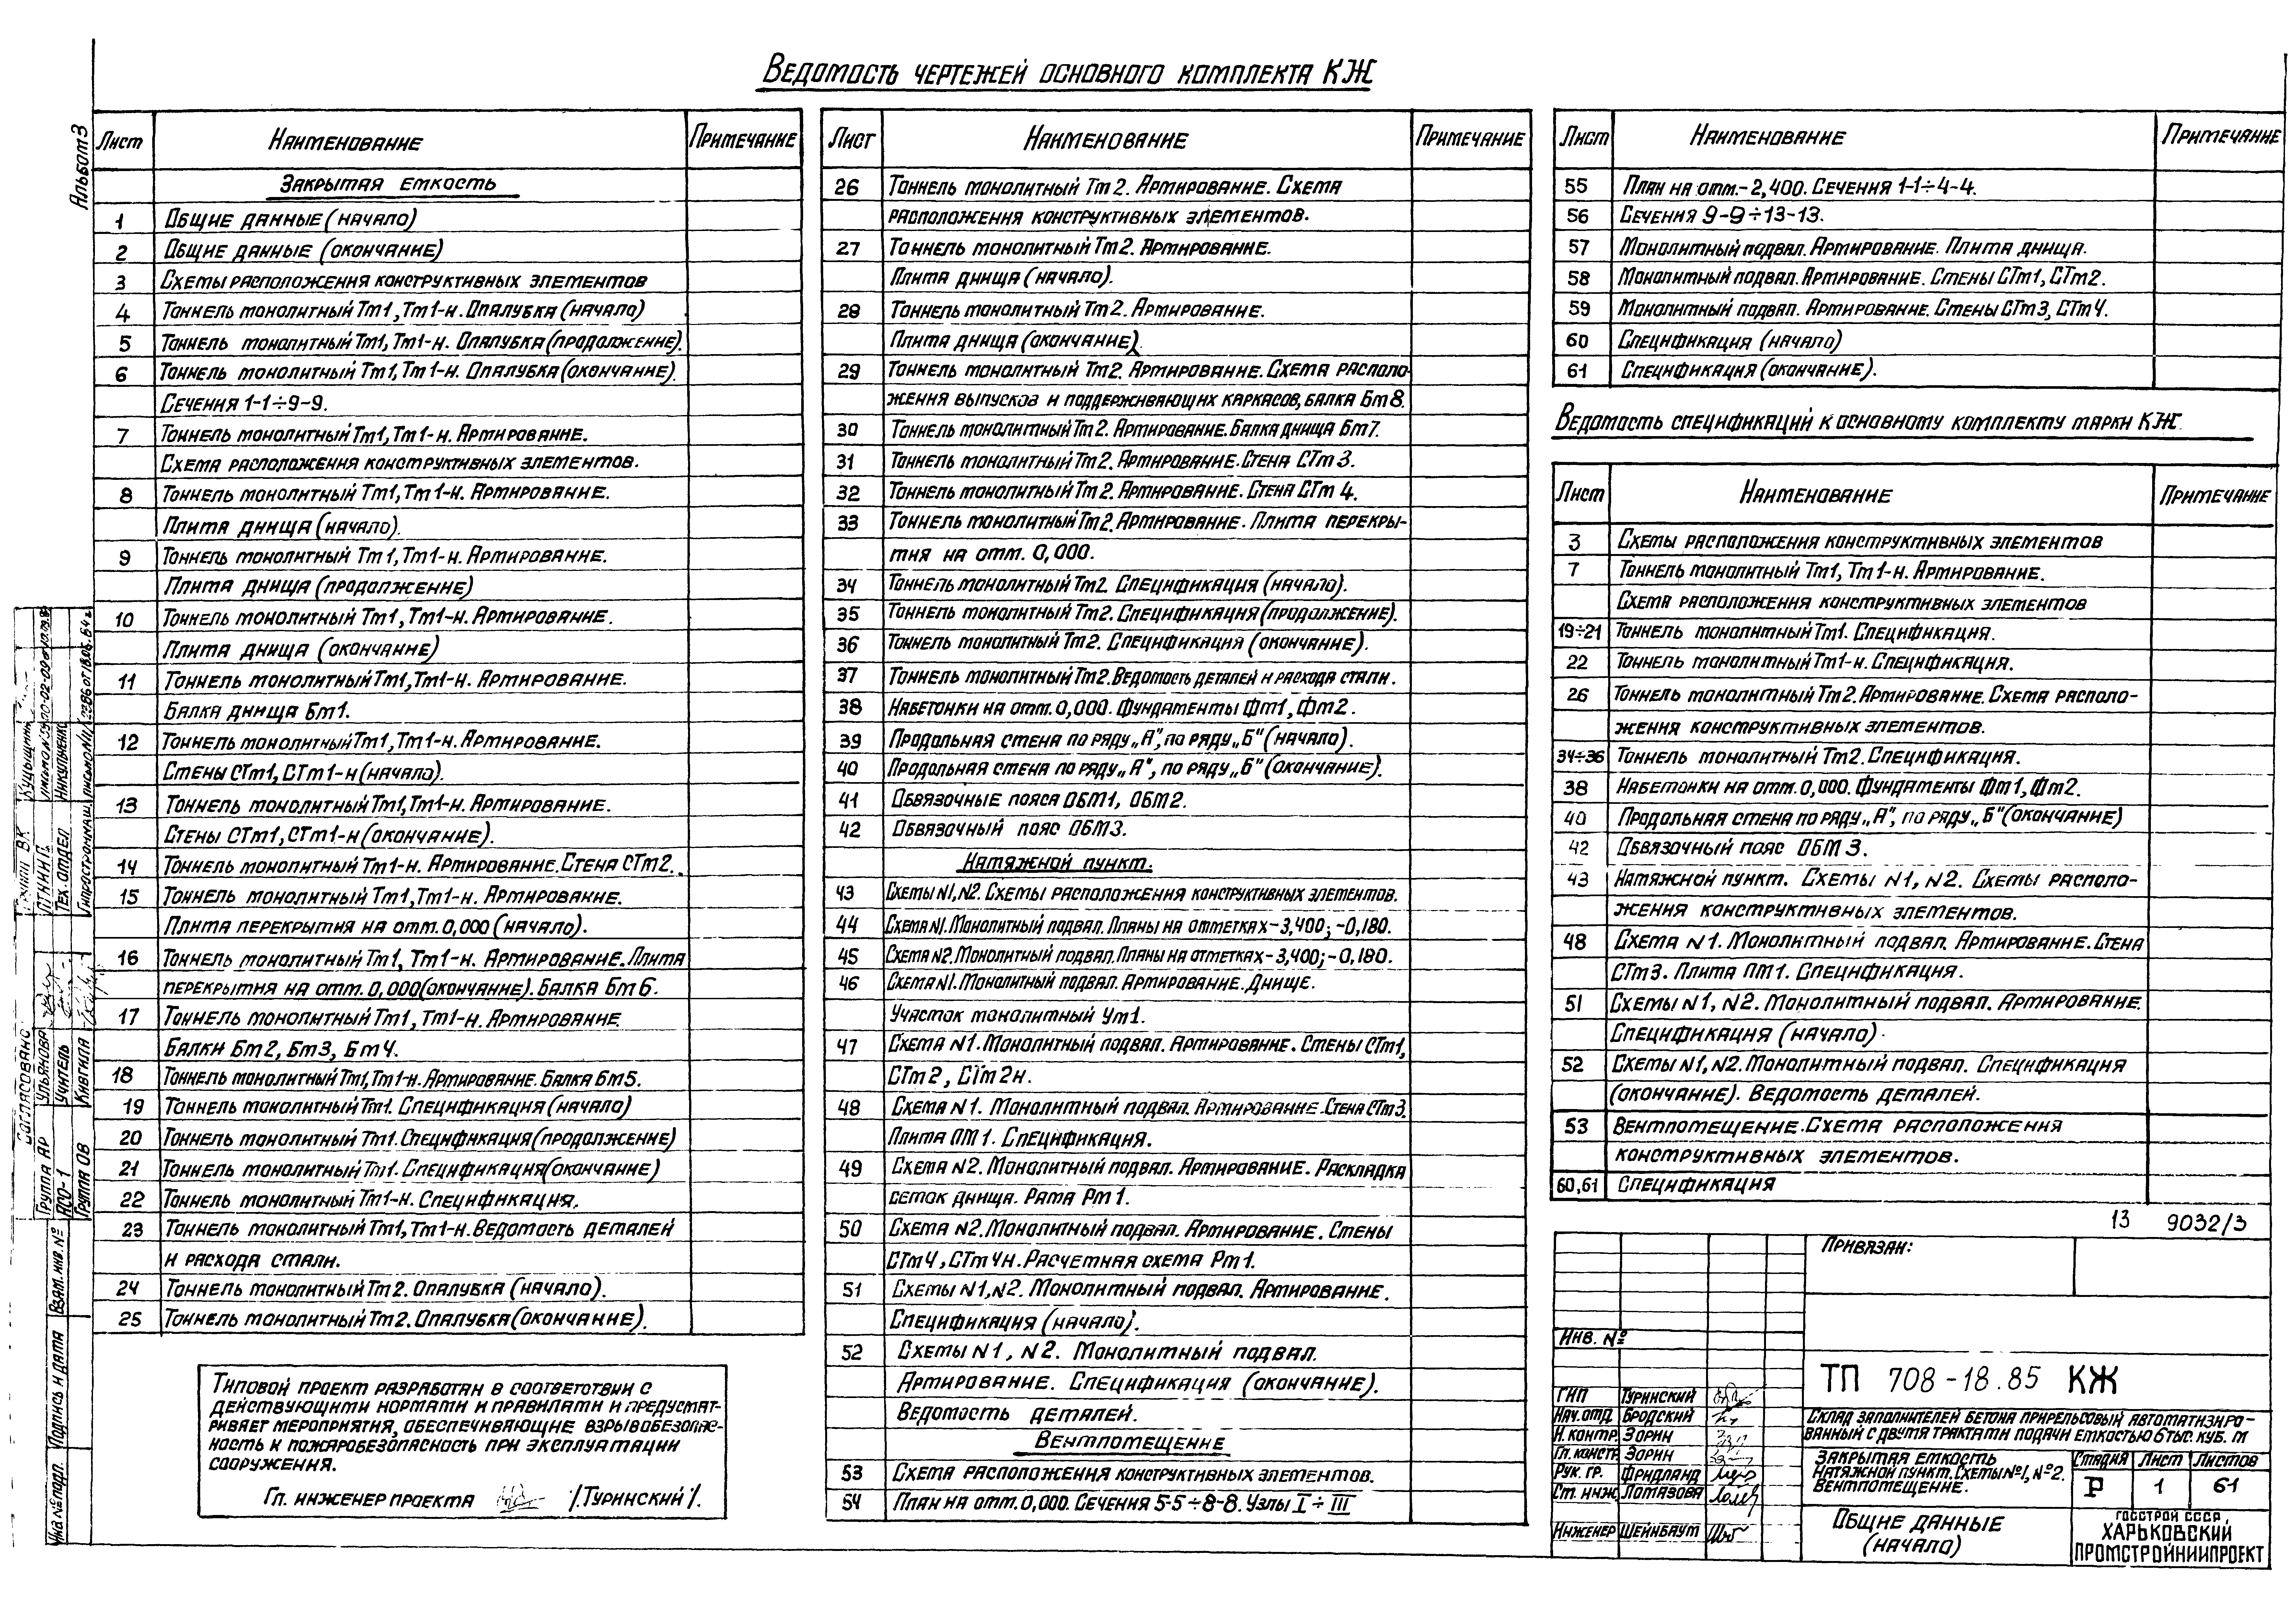 Ведомость чертежей основного комплекта КЖ
Альбом 3
Лист Наименование Примечание
Закрытая емкость
1 Общие данные (начало)
2 Общие данные (окончание)
3 Схемы расположения конструктивных элементов
4 Тоннель монолитный Тм1, Тм1-н. Опалубка (начало)
5 Тоннель монолитный Тм1, Тм1-н. Опалубка (продолжение).
6 Тоннель монолитный Тм1, Тм1-н. Опалубка (окончание).
Сечения 1-1÷9-9.
7 Тоннель монолитный Тм1, Тм1-н. Армирование.
Схема расположения конструктивных элементов.
8 Тоннель монолитный Тм1, Тм1-н. Армирование.
Плита днища (начало).
9 Тоннель монолитный Тм1, Тм1-н. Армирование.
Плита днища (продолжение)
10 Тоннель монолитный Тм1, Тм1-н. Армирование.
Плита днища (окончание)
11 Тоннель монолитный Тм1, Тм1-н. Армирование.
Балка днища Бм1.
12 Тоннель монолитный Тм1, Тм1-н. Армирование.
Стены СТм1, СТм1-н (начало).
13 Тоннель монолитный Тм1, Тм1-н. Армирование.
Стены СТм1, СТм1-н (окончание).
14 Тоннель монолитный Тм1-н. Армирование. Стена СТм2.
15 Тоннель монолитный Тм1, Тм1-н. Армирование.
Плита перекрытия на отм. 0,000 (начало).
16 Тоннель монолитный Тм1, Тм1-н. Армирование. Плита
перекрытия на отм. 0,000 (окончание). Балка Бм6.
17 Тоннель монолитный Тм1, Тм1-н. Армирование
Балки Бм2, Бм3, Бм4.
18 Тоннель монолитный Тм1, Тм1-н. Армирование. Балка Бм5.
19 Тоннель монолитный Тм1. Спецификация (начало)
20 Тоннель монолитный Тм1. Спецификация (продолжение)
21 Тоннель монолитный Тм1. Спецификация (окончание)
22 Тоннель монолитный Тм1-н. Спецификация.
23 Тоннель монолитный Тм1, Тм1-н. Ведомость деталей
и расхода стали.
24 Тоннель монолитный Тм2. Опалубка (начало).
25 Тоннель монолитный Тм2. Опалубка (окончание).
Типовой проект разработан в соответствии с
действующими нормами и правилами и предусмат-
ривает мероприятия, обеспечивающие взрывобезопас-
ность и пожаробезопасность при эксплуатации
сооружения.
Гл. инженер проекта /Туринский/.
Лист Наименование Примечание
26 Тоннель монолитный Тм2. Армирование. Схема
расположения конструктивных элементов.
27 Тоннель монолитный Тм2. Армирование.
Плита днища (начало).
28 Тоннель монолитный Тм2. Армирование.
Плита днища (окончание)
29 Тоннель монолитный Тм2. Армирование. Схема располо-
жения выпусков и поддерживающих каркасов, балка Бм8.
30 Тоннель монолитный Тм2. Армирование. Балка днища Бм7.
31 Тоннель монолитный Тм2. Армирование. Стена СТм3.
32 Тоннель монолитный Тм2. Армирование. Стена СТм4.
33 Тоннель монолитный Тм2. Армирование. Плита перекры-
тия на отм. 0,000.
34 Тоннель монолитный Тм2. Спецификация (начало).
35 Тоннель монолитный Тм2. Спецификация (продолжение).
36 Тоннель монолитный Тм2. Спецификация (окончание).
37 Тоннель монолитный Тм2. Ведомость деталей и расхода стали.
38 Набетонки на отм. 0,000. Фундаменты Фм1, Фм2.
39 Продольная стена по ряду „А", по ряду „Б" (начало).
40 Продольная стена по ряду „А", по ряду „Б" (окончание).
41 Обвязочные пояса ОБМ1, ОБМ2.
42 Обвязочный пояс ОБМ3.
Натяжной пункт.
43 Схемы N1, N2. Схемы расположения конструктивных элементов.
44 Схема N1. Монолитный подвал. Планы на отметках -3,400; -0,180.
45 Схема N2. Монолитный подвал. Планы на отметках -3,400; -0,180.
46 Схема N1. Монолитный подвал. Армирование. Днище.
Участок монолитный Ум1.
47 Схема N1. Монолитный подвал. Армирование. Стены СТм1,
СТм2, СТм2н.
48 Схема N1. Монолитный подвал. Армирование. Стена СТм3.
Плита ПМ1. Спецификация.
49 Схема N2. Монолитный подвал. Армирование. Раскладка
сеток днища. Рама Рм1.
50 Схема N2. Монолитный подвал. Армирование. Стены
СТм4, СТм4н. Расчетная схема Рм1.
51 Схемы N1, N2. Монолитный подвал. Армирование.
Спецификация (начало).
52 Схемы N1, N2. Монолитный подвал.
Армирование. Спецификация (окончание).
Ведомость деталей.
Вентпомещение
53 Схема расположения конструктивных элементов.
54 План на отм. 0,000. Сечения 5-5÷8-8. Узлы I÷III
Лист Наименование Примечание
55 План на отм. -2,400. Сечения 1-1÷4-4.
56 Сечения 9-9÷13-13.
57 Монолитный подвал. Армирование. Плита днища.
58 Монолитный подвал. Армирование. Стены СТм1, СТм2.
59 Монолитный подвал. Армирование. Стены СТм3, СТм4.
60 Спецификация (начало)
61 Спецификация (окончание).
Ведомость спецификаций к основному комплекту марки КЖ.
Лист Наименование Примечание
3 Схемы расположения конструктивных элементов
7 Тоннель монолитный Тм1, Тм1-н. Армирование.
Схема расположения конструктивных элементов
19÷21 Тоннель монолитный Тм1. Спецификация.
22 Тоннель монолитный Тм1-н. Спецификация.
26 Тоннель монолитный Тм2. Армирование. Схема располо-
жения конструктивных элементов.
34÷36 Тоннель монолитный Тм2. Спецификация.
38 Набетонки на отм. 0,000. Фундаменты Фм1, Фм2.
40 Продольная стена по ряду „А", по ряду „Б" (окончание)
42 Обвязочный пояс ОБМ3.
43 Натяжной пункт. Схемы N1, N2. Схемы располо-
жения конструктивных элементов.
48 Схема N1. Монолитный подвал. Армирование. Стена
СТм3. Плита ПМ1. Спецификация.
51 Схемы N1, N2. Монолитный подвал. Армирование.
Спецификация (начало).
52 Схемы N1, N2. Монолитный подвал. Спецификация
(окончание). Ведомость деталей.
53 Вентпомещение. Схема расположения
конструктивных элементов.
60,61 Спецификация
13 9032/3
Привязан:
Инв. №
ТП 708-18.85 КЖ
ГИП Туринский
Нач. отд. Бродский
Н. контр. Зорин
Гл. констр. Зорин
Рук. гр. Фридланд
Ст. инж. Ломазова
Инженер Шейнбаум
Склад заполнителей бетона прирельсовый автоматизиро-
ванный с двумя трактами подачи емкостью 6 тыс. куб. м
Закрытая емкость
Натяжной пункт. Схемы №1, №2.
Вентпомещение.
Стадия Лист Листов
Р 1 61
Общие данные
(начало)
Госстрой СССР,
Харьковский
Промстройниипроект
Согласовано
Группа АР Ульянова
АСО-1 Учитель
Группа ОВ Княгила
ВК Куцыщин
Тех. отдел Никульченко
Гипростроммаш
Взам. инв. №
Подпись и дата
Инв. № подл.